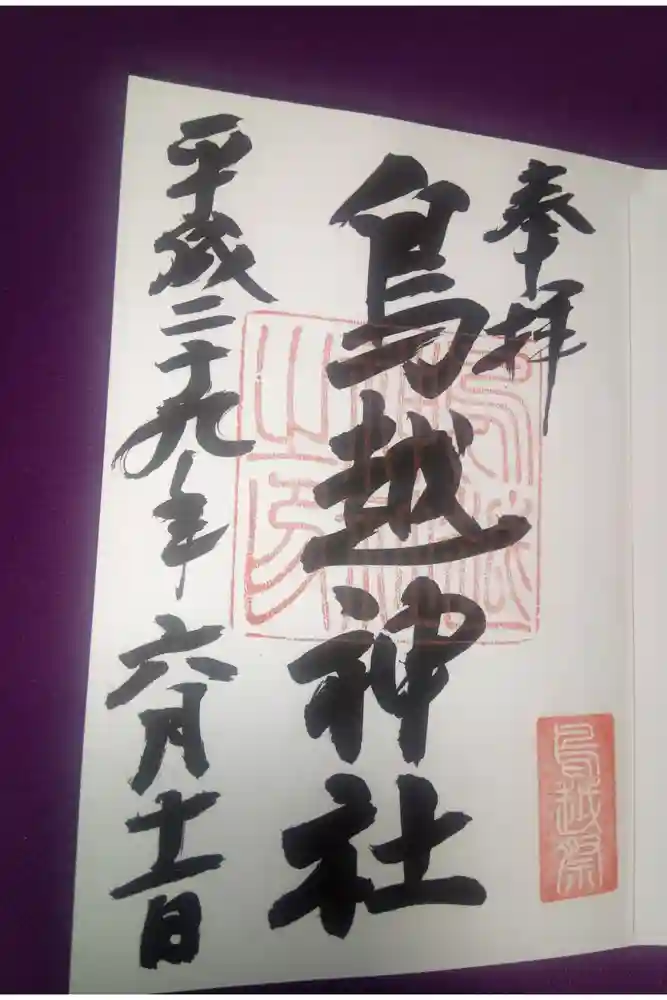 奉拝
鳥越神社
平成二十九年六月十一日
鳥越祭